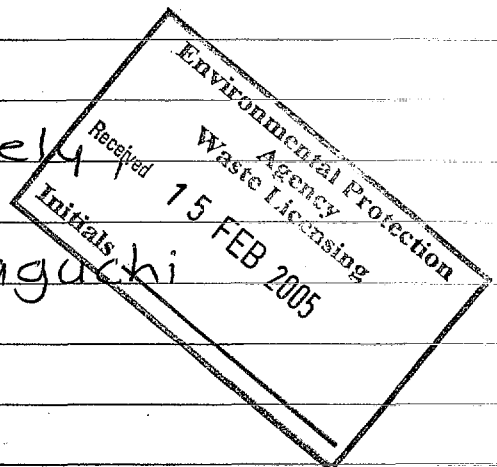 ely,
aguchi
Environmental Protection
Agency
Waste Licensing
Received
15 FEB 2005
Initials